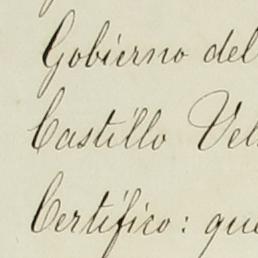 Gobierno del
Castillo Vel
Certifico: que